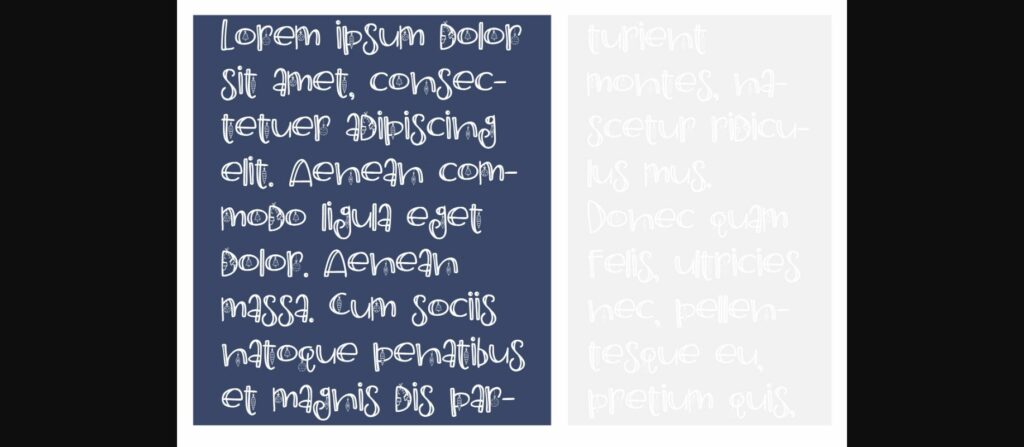 Lorem ipsum Dolor
sit amet, consec-
tetuer aDipiscing
elit. Aenean com-
moDo ligula eget
Dolor. Aenean
massa. Cum sociis
natoque penatibus
et magnis Dis par-
turient
montes, na-
scetur riDicu-
lus mus.
Donec quam
Felis, ultricies
nec, pellen-
tesque eu,
pretium quis,